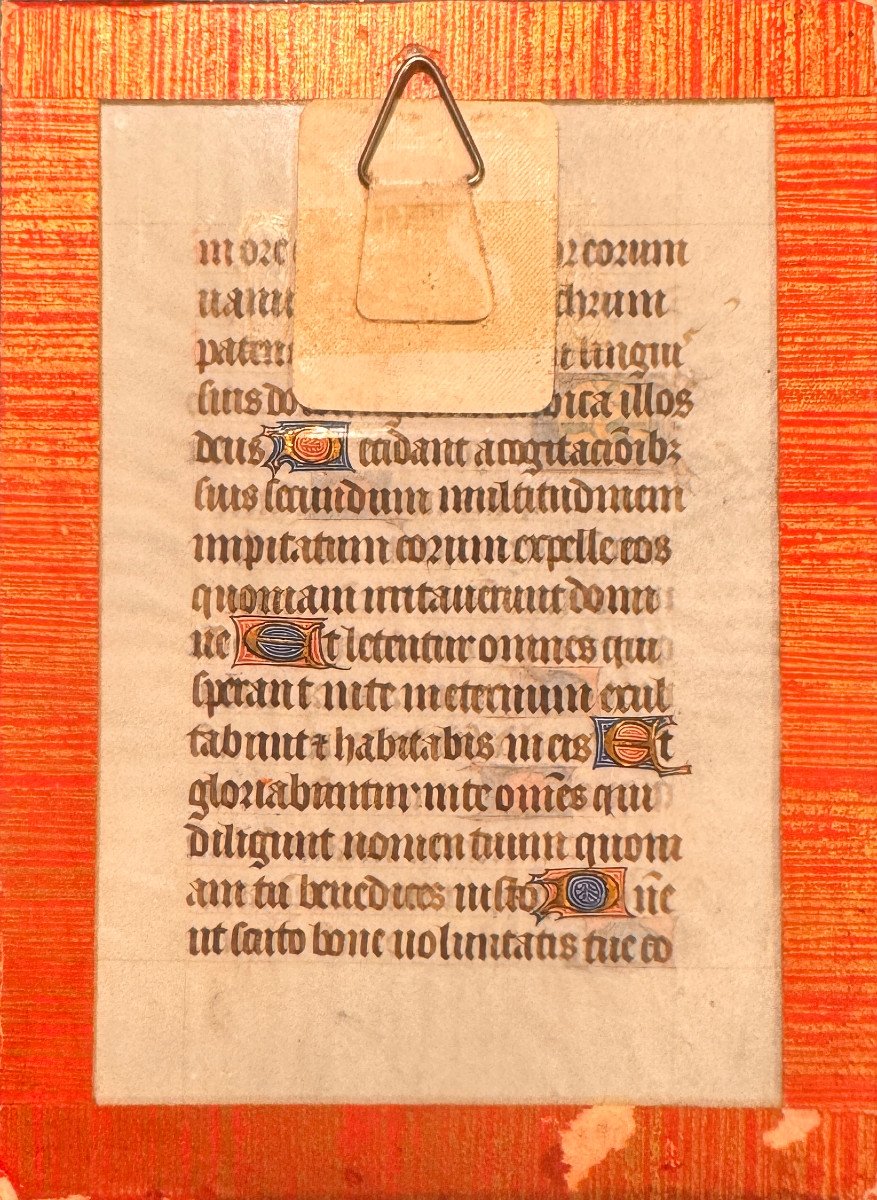 in ore corum
uanu chrum
paten t lingui
suis do dica illos
deus Decidant a cogitacioib3
suis secundum multitudinem
impitatum eorum expelle eos
quoniam irritauerunt domi
ne Et letentur omnes qui
sperant inte in eternum exul
tabunt ⁊ habitabis in eis Et
gloriabuntur inte omēs qui
diligunt nomen tuum quoni
am tu benedices iusto Dn̄e
ut scuto bone uoluntatis tue co